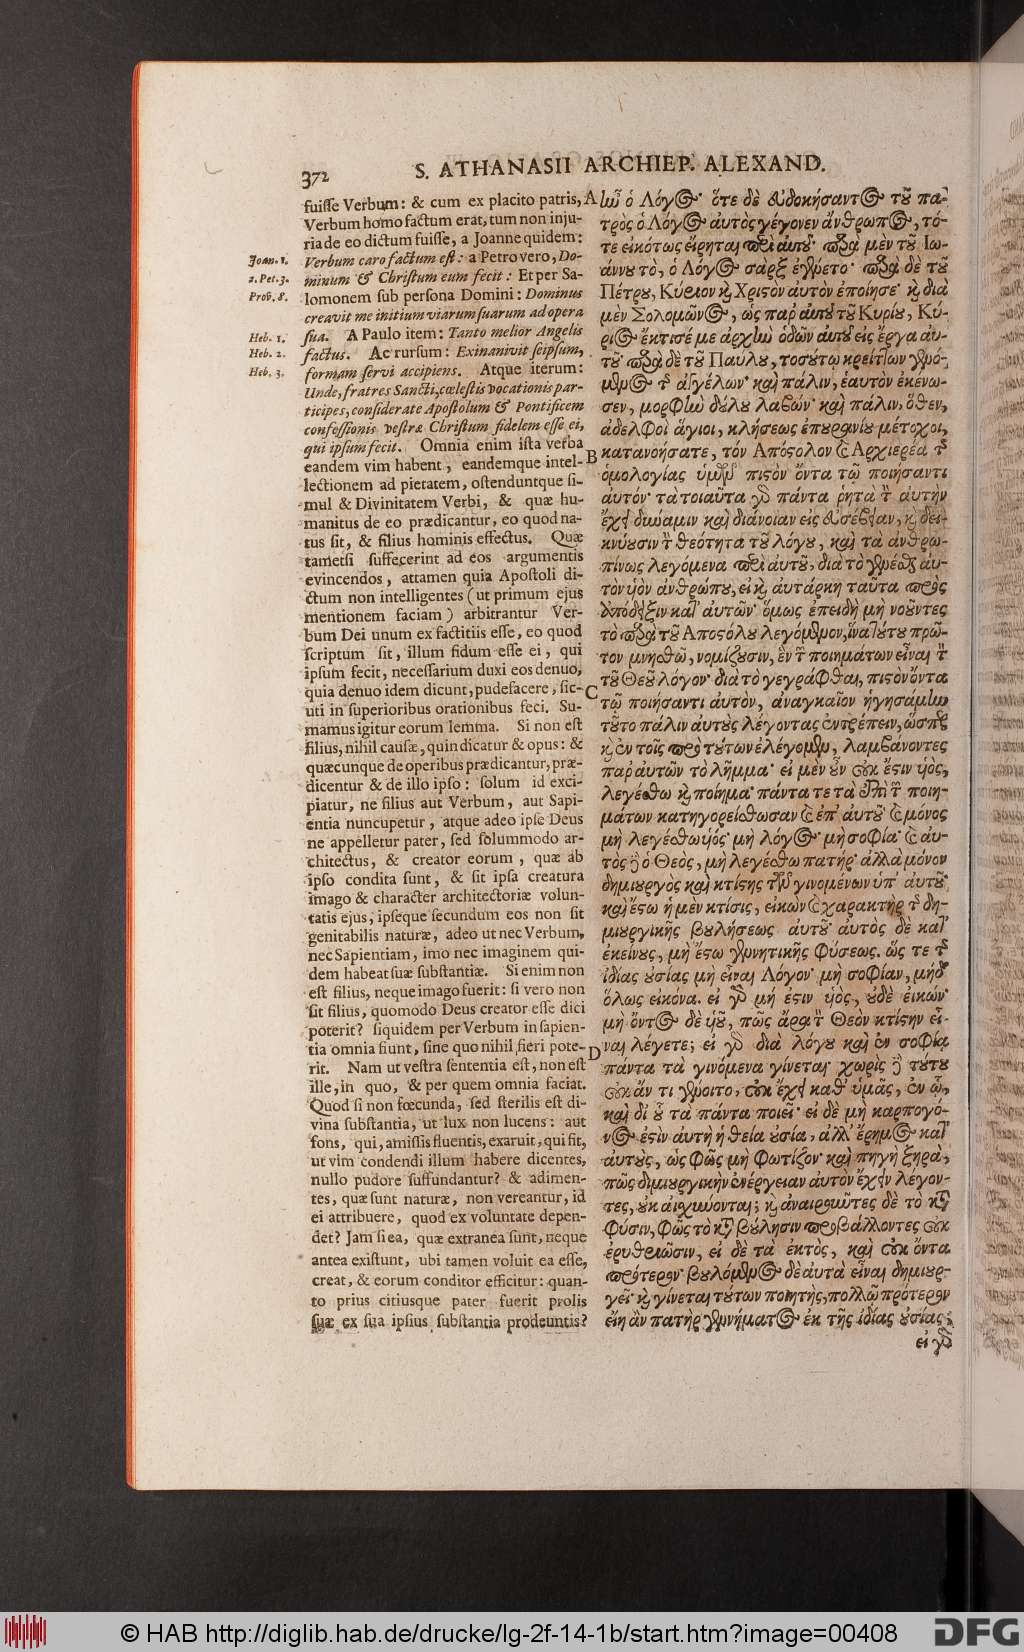 372
S. ATHANASII ARCHIEP. ALEXAND.
fuisse Verbum: & cum ex placito patris,
Verbum homo factum erat, tum non inju-
ria de eo dictum fuisse, a Joanne quidem:
Verbum caro factum est: a Petro vero, Do-
minum & Christum eum fecit: Et per Sa-
lomonem sub persona Domini: Dominus
creavit me initium viarum suarum ad opera
sua. A Paulo item: Tanto melior Angelis
factus. Ac rursum: Exinanivit seipsum,
formam servi accipiens. Atque iterum:
Unde, fratres Sancti, cœlestis vocationis par-
ticipes, considerate Apostolum & Pontificem
confessionis vestræ Christum fidelem esse ei,
qui ipsum fecit. Omnia enim ista verba
eandem vim habent, eandemque intel-
lectionem ad pietatem, ostenduntque si-
mul & Divinitatem Verbi, & quæ hu-
manitus de eo prædicantur, eo quod na-
tus sit, & filius hominis effectus. Quæ
tametsi suffecerint ad eos argumentis
evincendos, attamen quia Apostoli di-
ctum non intelligentes (ut primum ejus
mentionem faciam) arbitrantur Ver-
bum Dei unum ex factitiis esse, eo quod
scriptum sit, illum fidum esse ei, qui
ipsum fecit, necessarium duxi eos denuo,
quia denuo idem dicunt, pudefacere, sic-
uti in superioribus orationibus feci. Su-
mamus igitur eorum lemma. Si non est
filius, nihil causæ, quin dicatur & opus: &
quæcunque de operibus prædicantur, præ-
dicentur & de illo ipso: solum id exci-
piatur, ne filius aut Verbum, aut Sapi-
entia nuncupetur, atque adeo ipse Deus
ne appelletur pater, sed solummodo ar-
chitectus, & creator eorum, quæ ab
ipso condita sunt, & sit ipsa creatura
imago & character architectoriæ volun-
tatis ejus, ipseque secundum eos non sit
genitabilis naturæ, adeo ut nec Verbum,
nec Sapientiam, imo nec imaginem qui-
dem habeat suæ substantiæ. Si enim non
est filius, neque imago fuerit: si vero non
sit filius, quomodo Deus creator esse dici
poterit? siquidem per Verbum in sapien-
tia omnia fiunt, sine quo nihil fieri pote-
rit. Nam ut vestra sententia est, non est
ille, in quo, & per quem omnia faciat.
Quod si non fœcunda, sed sterilis est di-
vina substantia, ut lux non lucens: aut
fons, qui, amissis fluentis, exaruit, qui fit,
ut vim condendi illum habere dicentes,
nullo pudore suffundantur? & adimen-
tes, quæ sunt naturæ, non vereantur, id
ei attribuere, quod ex voluntate depen-
det? Jam si ea, quæ extranea sunt, neque
antea existunt, ubi tamen voluit ea esse,
creat, & eorum conditor efficitur: quan-
to prius citiusque pater fuerit prolis
suæ ex sua ipsius substantia prodeuntis?
Joan. 1.
2. Pet. 3.
Prov. 8.
Heb. 1.
Heb. 2.
Heb. 3.
A
B
C
D
ἦν ὁ Λόγος· ὅτε δὲ εὐδοκήσαντος τοῦ πα-
τρὸς ὁ Λόγος αὐτὸς γέγονεν ἄνθρωπος, τό-
τε εἰκότως εἴρηται περὶ αὐτοῦ· παρὰ μὲν τοῦ Ἰω-
άννου τὸ, ὁ Λόγος σὰρξ ἐγένετο· παρὰ δὲ τοῦ
Πέτρου, Κύριον καὶ Χριστὸν αὐτὸν ἐποίησε· καὶ διὰ
μὲν Σολομῶνος, ὡς παρ' αὐτοῦ τοῦ Κυρίου, Κύ-
ριος ἔκτισέ με ἀρχὴν ὁδῶν αὐτοῦ εἰς ἔργα αὐ-
τοῦ· παρὰ δὲ τοῦ Παύλου, τοσούτῳ κρείττων γενό-
μενος τῶν ἀγγέλων· καὶ πάλιν, ἑαυτὸν ἐκένω-
σεν, μορφὴν δούλου λαβών· καὶ πάλιν, ὅθεν,
ἀδελφοὶ ἅγιοι, κλήσεως ἐπουρανίου μέτοχοι,
κατανοήσατε, τόν Ἀπόστολον καὶ Ἀρχιερέα τῆς
ὁμολογίας ὑμῶν πιστὸν ὄντα τῷ ποιήσαντι
αὐτόν· τὰ τοιαῦτα γὰρ πάντα ῥητὰ τὴν αὐτὴν
ἔχει δύναμιν καὶ διάνοιαν εἰς εὐσέβειαν, καὶ δει-
κνύουσιν τὴν θεότητα τοῦ λόγου, καὶ τὰ ἀνθρω-
πίνως λεγόμενα περὶ αὐτοῦ, διὰ τὸ γενέσθαι αὐ-
τὸν υἱὸν ἀνθρώπου, εἰ καὶ αὐτάρκη ταῦτα πρὸς
ἀπόδειξιν κατ' αὐτῶν· ὅμως ἐπειδὴ μὴ νοῦντες
τὸ παρὰ τοῦ Ἀποστόλου λεγόμενον, ἵνα τούτου πρῶ-
τον μνησθῶ, νομίζουσιν, ἓν τῶν ποιημάτων εἶναι τὸν
τοῦ Θεοῦ λόγον· διὰ τὸ γεγράφθαι, πιστὸν ὄντα
τῷ ποιήσαντι αὐτὸν, ἀναγκαῖον ἡγησάμην
τοῦτο πάλιν αὐτοὺς λέγοντας ἐντρέπειν, ὥσπερ
καὶ ἐν τοῖς πρὸ τούτων ἐλέγομεν, λαμβάνοντες
παρ' αὐτῶν τὸ λῆμμα· εἰ μὲν οὖν οὐκ ἔστιν υἱὸς,
λεγέσθω καὶ ποίημα· πάντα τε τὰ ἐπὶ τῶν ποιη-
μάτων κατηγορείσθωσαν καὶ ἐπ' αὐτοῦ· καὶ μόνος
μὴ λεγέσθω υἱός· μὴ λόγος· μὴ σοφία· καὶ αὐ-
τὸς δὲ ὁ Θεὸς, μὴ λεγέσθω πατήρ· ἀλλὰ μόνον
δημιουργὸς καὶ κτίστης τῶν γινομένων ὑπ' αὐτοῦ·
καὶ ἔστω ἡ μὲν κτίσις, εἰκὼν καὶ χαρακτὴρ τῆς δη-
μιουργικῆς βουλήσεως αὐτοῦ· αὐτὸς δὲ κατ'
ἐκείνους, μὴ ἔστω γεννητικῆς φύσεως. ὥς τε τῆς
ἰδίας οὐσίας μὴ εἶναι Λόγον· μὴ σοφίαν, μηδὲ
ὅλως εἰκόνα. εἰ γὰρ μή ἐστιν υἱὸς, οὐδὲ εἰκών·
μὴ ὄντος δὲ υἱοῦ, πῶς ἄρα τὸν Θεὸν κτίστην εἶ-
ναι λέγετε; εἰ γὰρ διὰ λόγου καὶ ἐν σοφίᾳ
πάντα τὰ γινόμενα γίνεται· χωρὶς δὲ τούτου
οὐκ ἄν τι γένοιτο, οὐκ ἔχει καθ' ὑμᾶς, ἐν ᾧ,
καὶ δι' οὗ τὰ πάντα ποιεῖ· εἰ δὲ μὴ καρπογό-
νος ἐστὶν αὐτὴ ἡ θεία οὐσία, ἀλλ' ἔρημος κατ'
αὐτοὺς, ὡς φῶς μὴ φωτίζον· καὶ πηγὴ ξηρὰ,
πῶς δημιουργικὴν ἐνέργειαν αὐτὸν ἔχειν λέγον-
τες, οὐκ αἰσχύνονται; καὶ ἀναιροῦντες δὲ τὸ κατὰ
φύσιν, φῶς τὸ κατὰ βούλησιν προβάλλοντες οὐκ
ἐρυθριῶσιν, εἰ δὲ τὰ ἐκτὸς, καὶ οὐκ ὄντα
πρότερον· βουλόμενος δὲ αὐτὰ εἶναι δημιουρ-
γεῖ· καὶ γίνεται τούτων ποιητὴς, πολλῷ πρότερον
εἴη ἂν πατὴρ γεννήματος ἐκ τῆς ἰδίας οὐσίας;
εἰ γὰρ
© HAB http://diglib.hab.de/drucke/lg-2f-14-1b/start.htm?image=00408
DFG